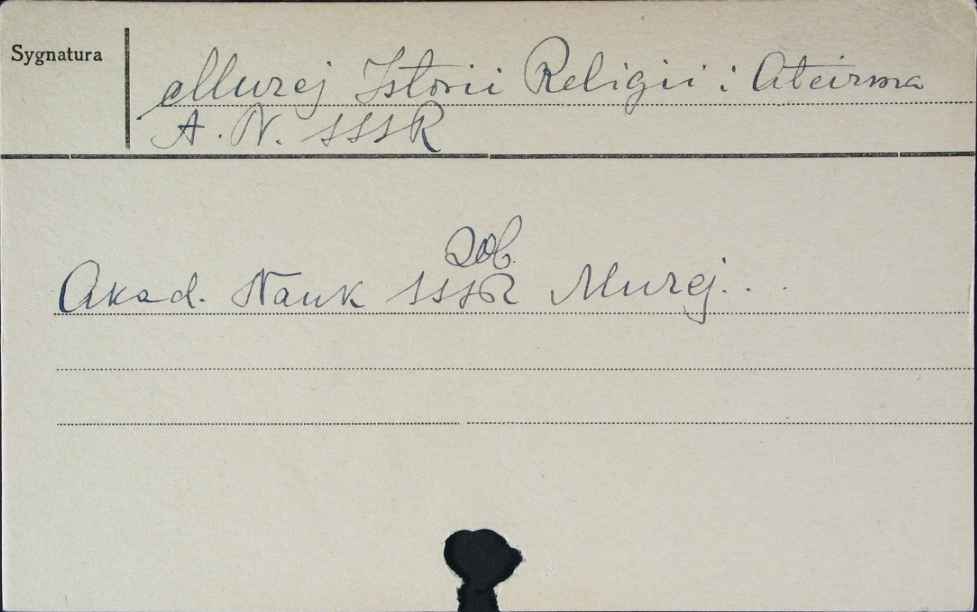 Sygnatura
Muzej Istorii Religii i Ateizma
A. N. SSSR
zob.
Akad. Nauk SSSR Muzej...